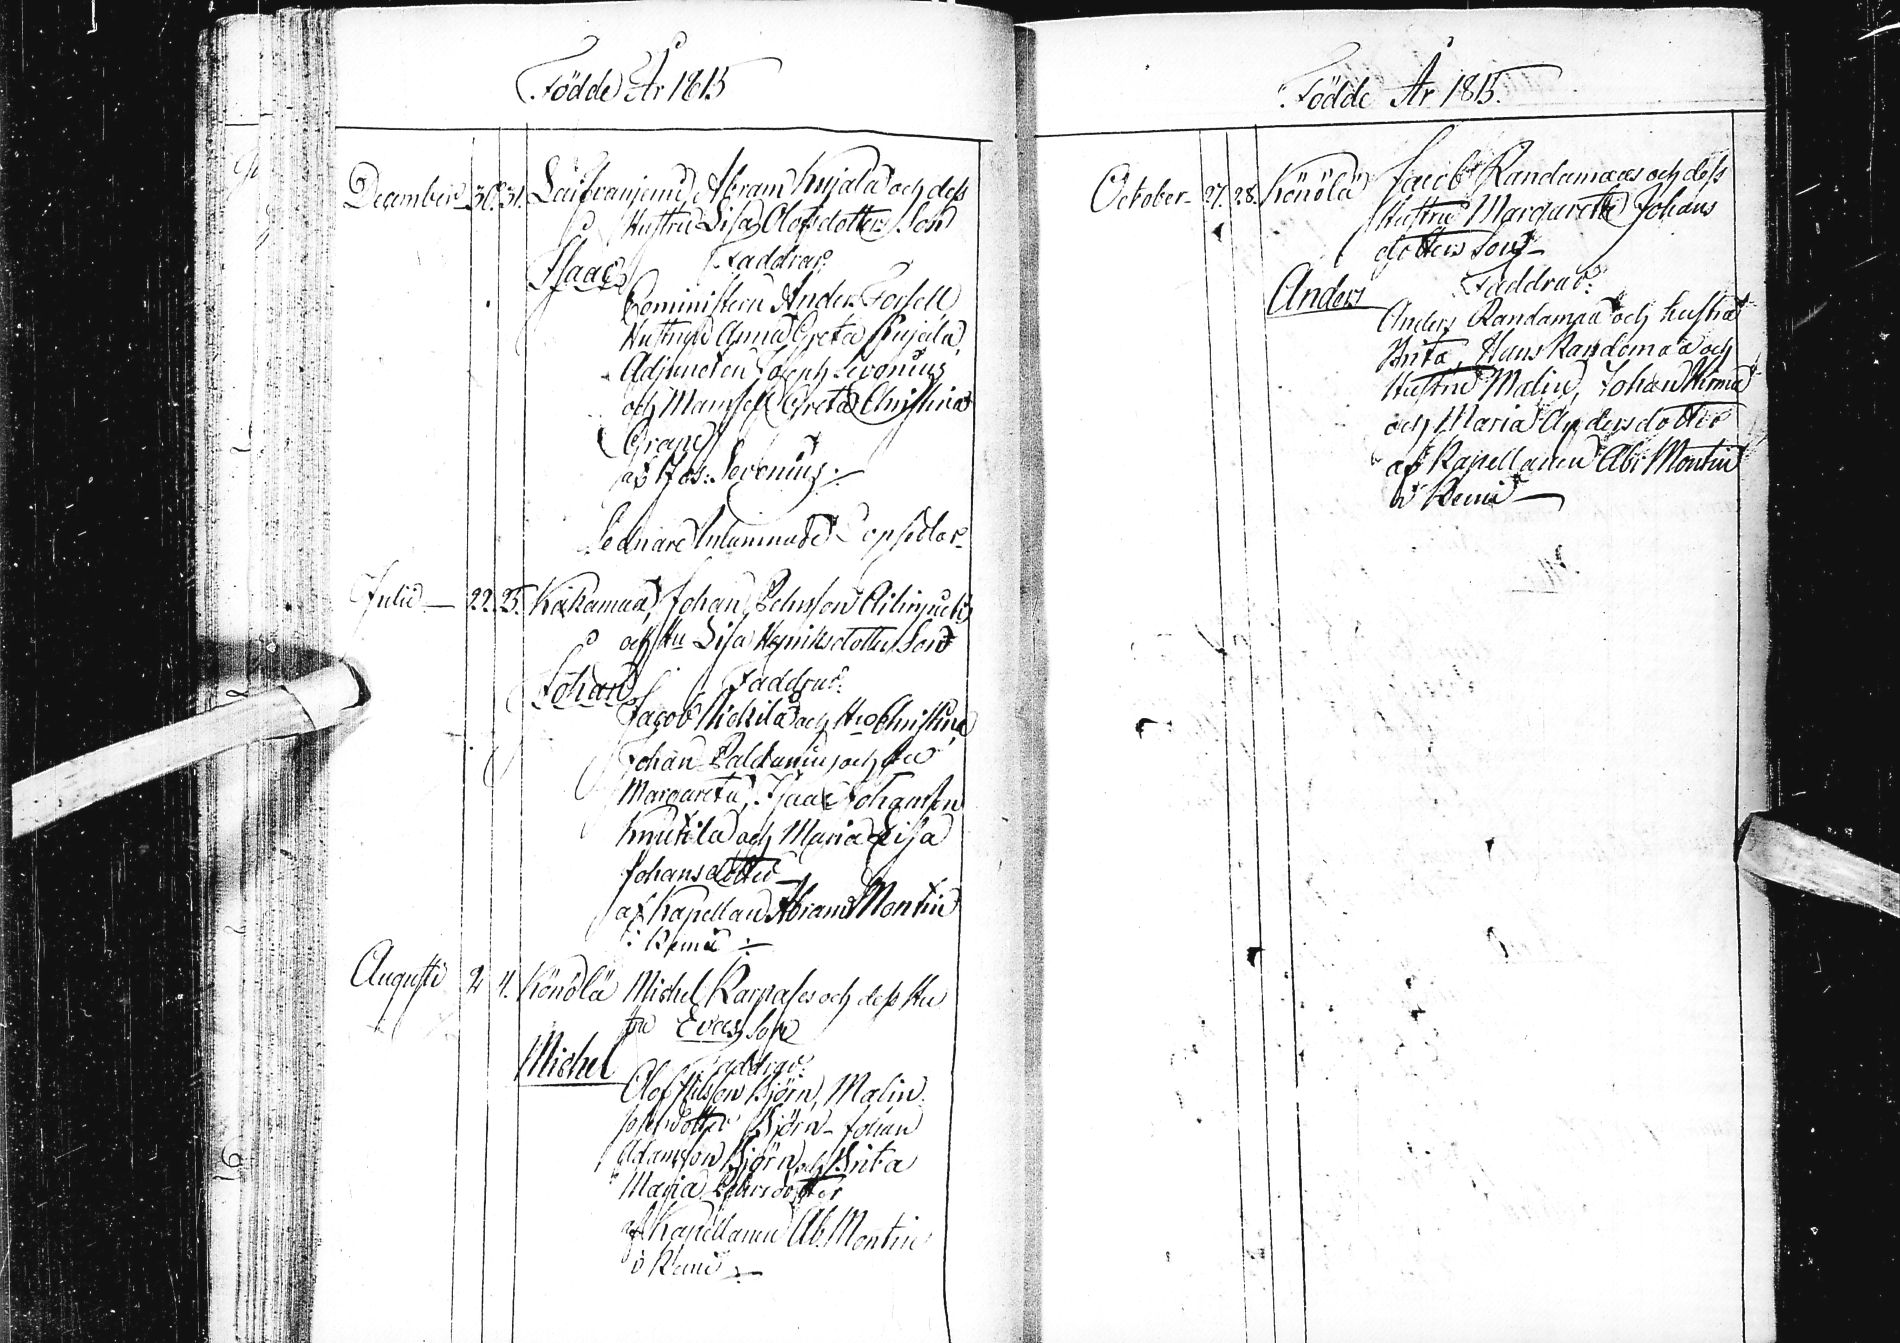 Födde År 1815
December 30. 31. Laifvaniemi, Abram Kujala och dess
Hustru Lisa Olofsdotters Son
Isaac
Faddrar
Cominister Anders Forsell
Hustrun Anna Greta Kujala,
Adjuncten Joseph Sevonius
och Mamsell Greta Christina
Grape
af Jos: Sevonius
Sednare Inlemnade
Julii 22. 25. Kakamaa, Johan Pehrsson
och Hu Lisa Henriksdotters Son
Johan
Faddrar:
Jacob Nickila och Hu Christina
Johan och Hu
Margareta, Isaac Johansson
Knutila och Maria Lisa
Johansdotter
af Kapellan Abram Montin
i Kemi
Augusti 2 4. Könölä Michel Karpases och dess Hu
stru Evas Son
Michel
Faddrar:
Olof Nilsson Björn, Malin
Björn, Johan
Adamsson Björn och Brita
Maria Pehrsdotter
af Kapellanen Ab. Montin
i Kemi
Födde År 1815.
October 27. 28. Könölä Jacob Randamaas och dess
Hustru Margareta Johans
dotters Son
Anders
Faddrar:
Anders Randamaa och hustru
Brita, Hans Randamaa och
Hustru Malin, Johan
och Maria Andersdotter
af Kapellanen Abr Montin
i Kemi
16